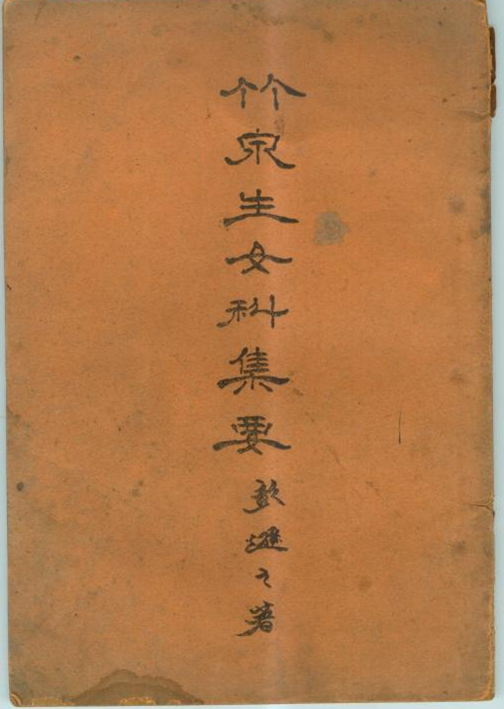 竹泉生女科集要 彭遜之著